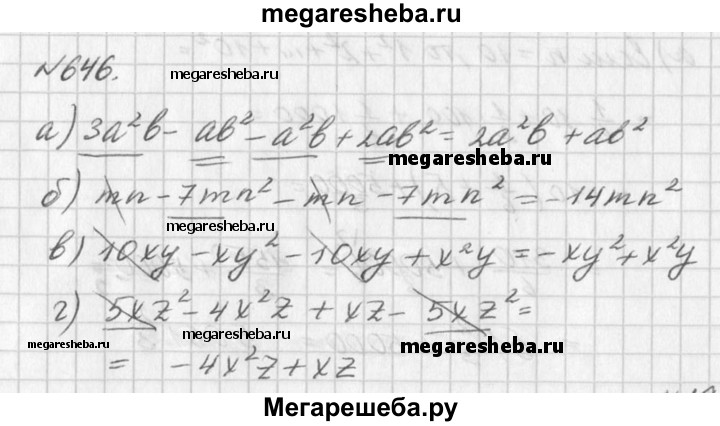 megaresheba.ru
№646.
megaresheba.ru
а) 3a²b - ab² - a²b + 2ab² = 2a²b + ab²
megaresheba.ru
б) mn - 7mn² - mn - 7mn² = -14mn²
в) 10xy - xy² - 10xy + x²y = -xy² + x²y
г) 5xz² - 4x²z + xz - 5xz² =
megaresheba.ru
megaresheba.ru
megaresheba.ru
= -4x²z + xz
Мегарешеба.ру